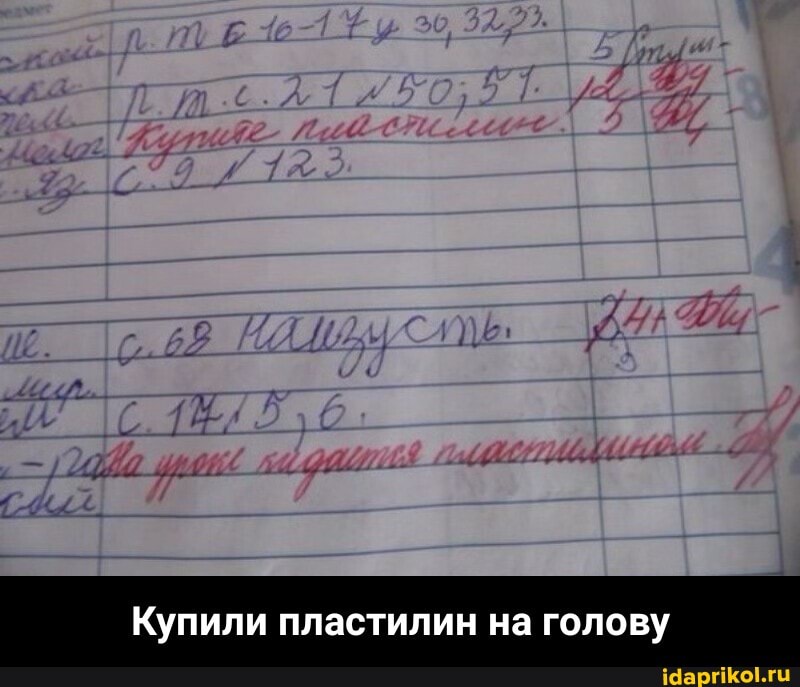 р. т с 16-17 у 30, 32, 33. 5
ка.
р. т. с. 21 №50; 51. 12
Купите пластилин! 5
яз с. 9 № 123.
с. 68 наизусть. 4+
мир. 3
с. 17 № 5, 6.
На уроке кидается пластилином.
Купили пластилин на голову
idaprikol.ru